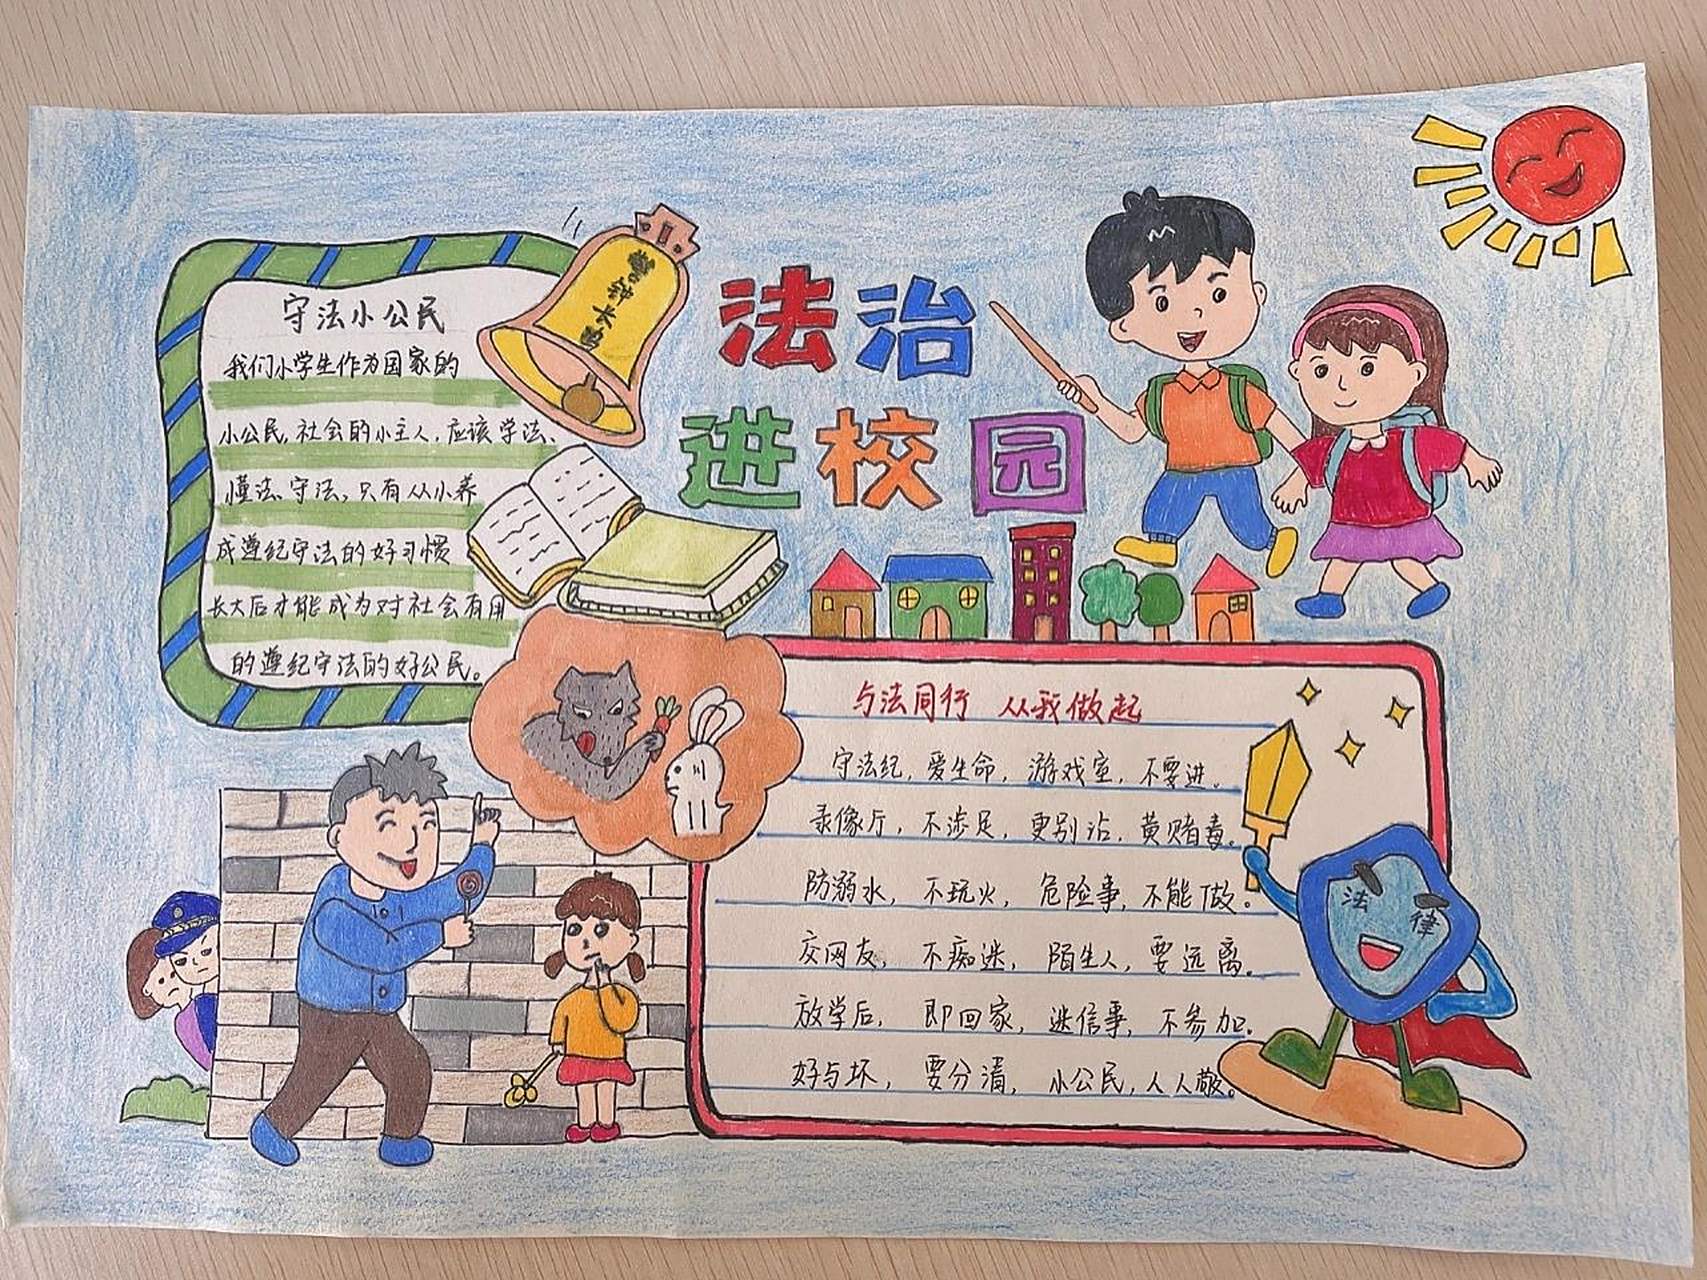 法治
进校园
警钟长鸣
守法小公民
我们小学生作为国家的
小公民,社会的小主人,应该学法、
懂法、守法,只有从小养
成遵纪守法的好习惯
长大后才能成为对社会有用
的遵纪守法的好公民。
与法同行 从我做起
守法纪,爱生命,游戏室,不要进。
录像厅,不涉足,更别沾,黄赌毒。
防溺水,不玩火,危险事,不能做。
交网友,不痴迷,陌生人,要远离。
放学后,即回家,迷信事,不参加。
好与坏,要分清,小公民,人人敬。
法律